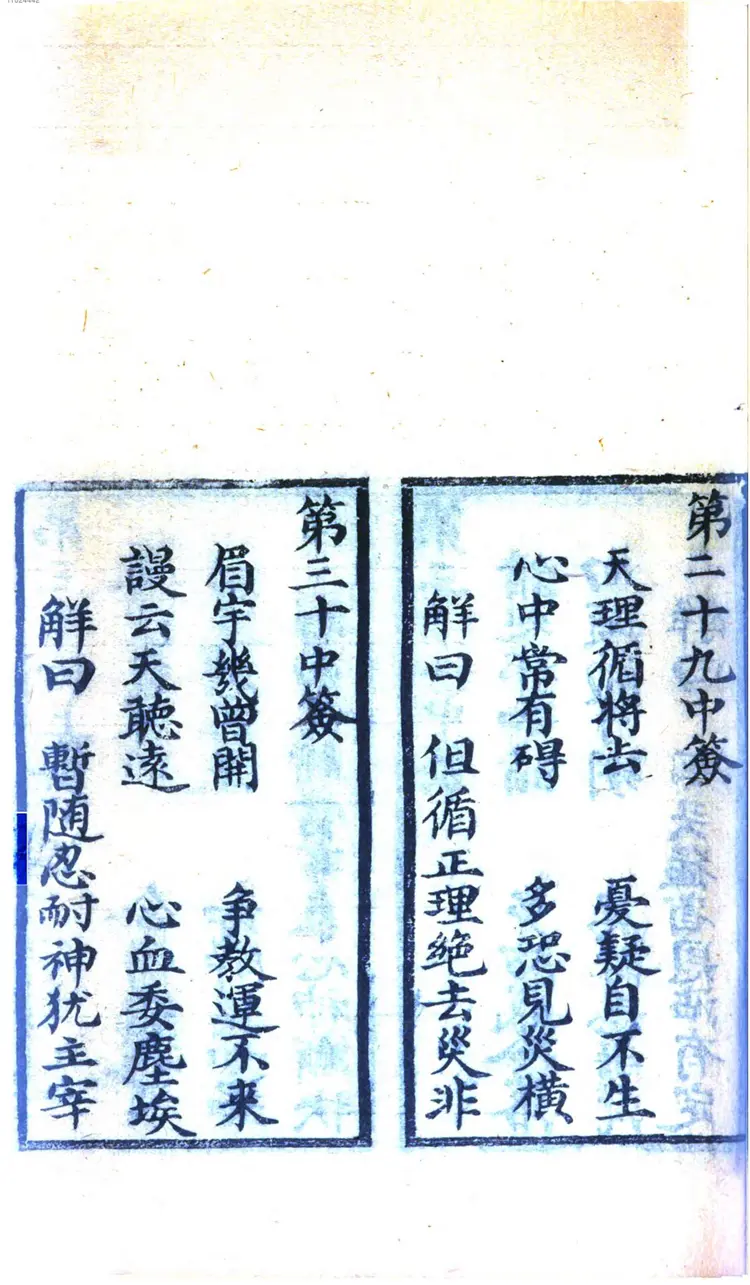 第二十九中簽
天理循將去　憂疑自不生
心中常有碍　多恐見災橫
解曰　但循正理絶去災非
第三十中簽
眉宇幾曾開　争教運不来
謾云天聽遠　心血委塵埃
解曰　暫随忍耐神犹主宰